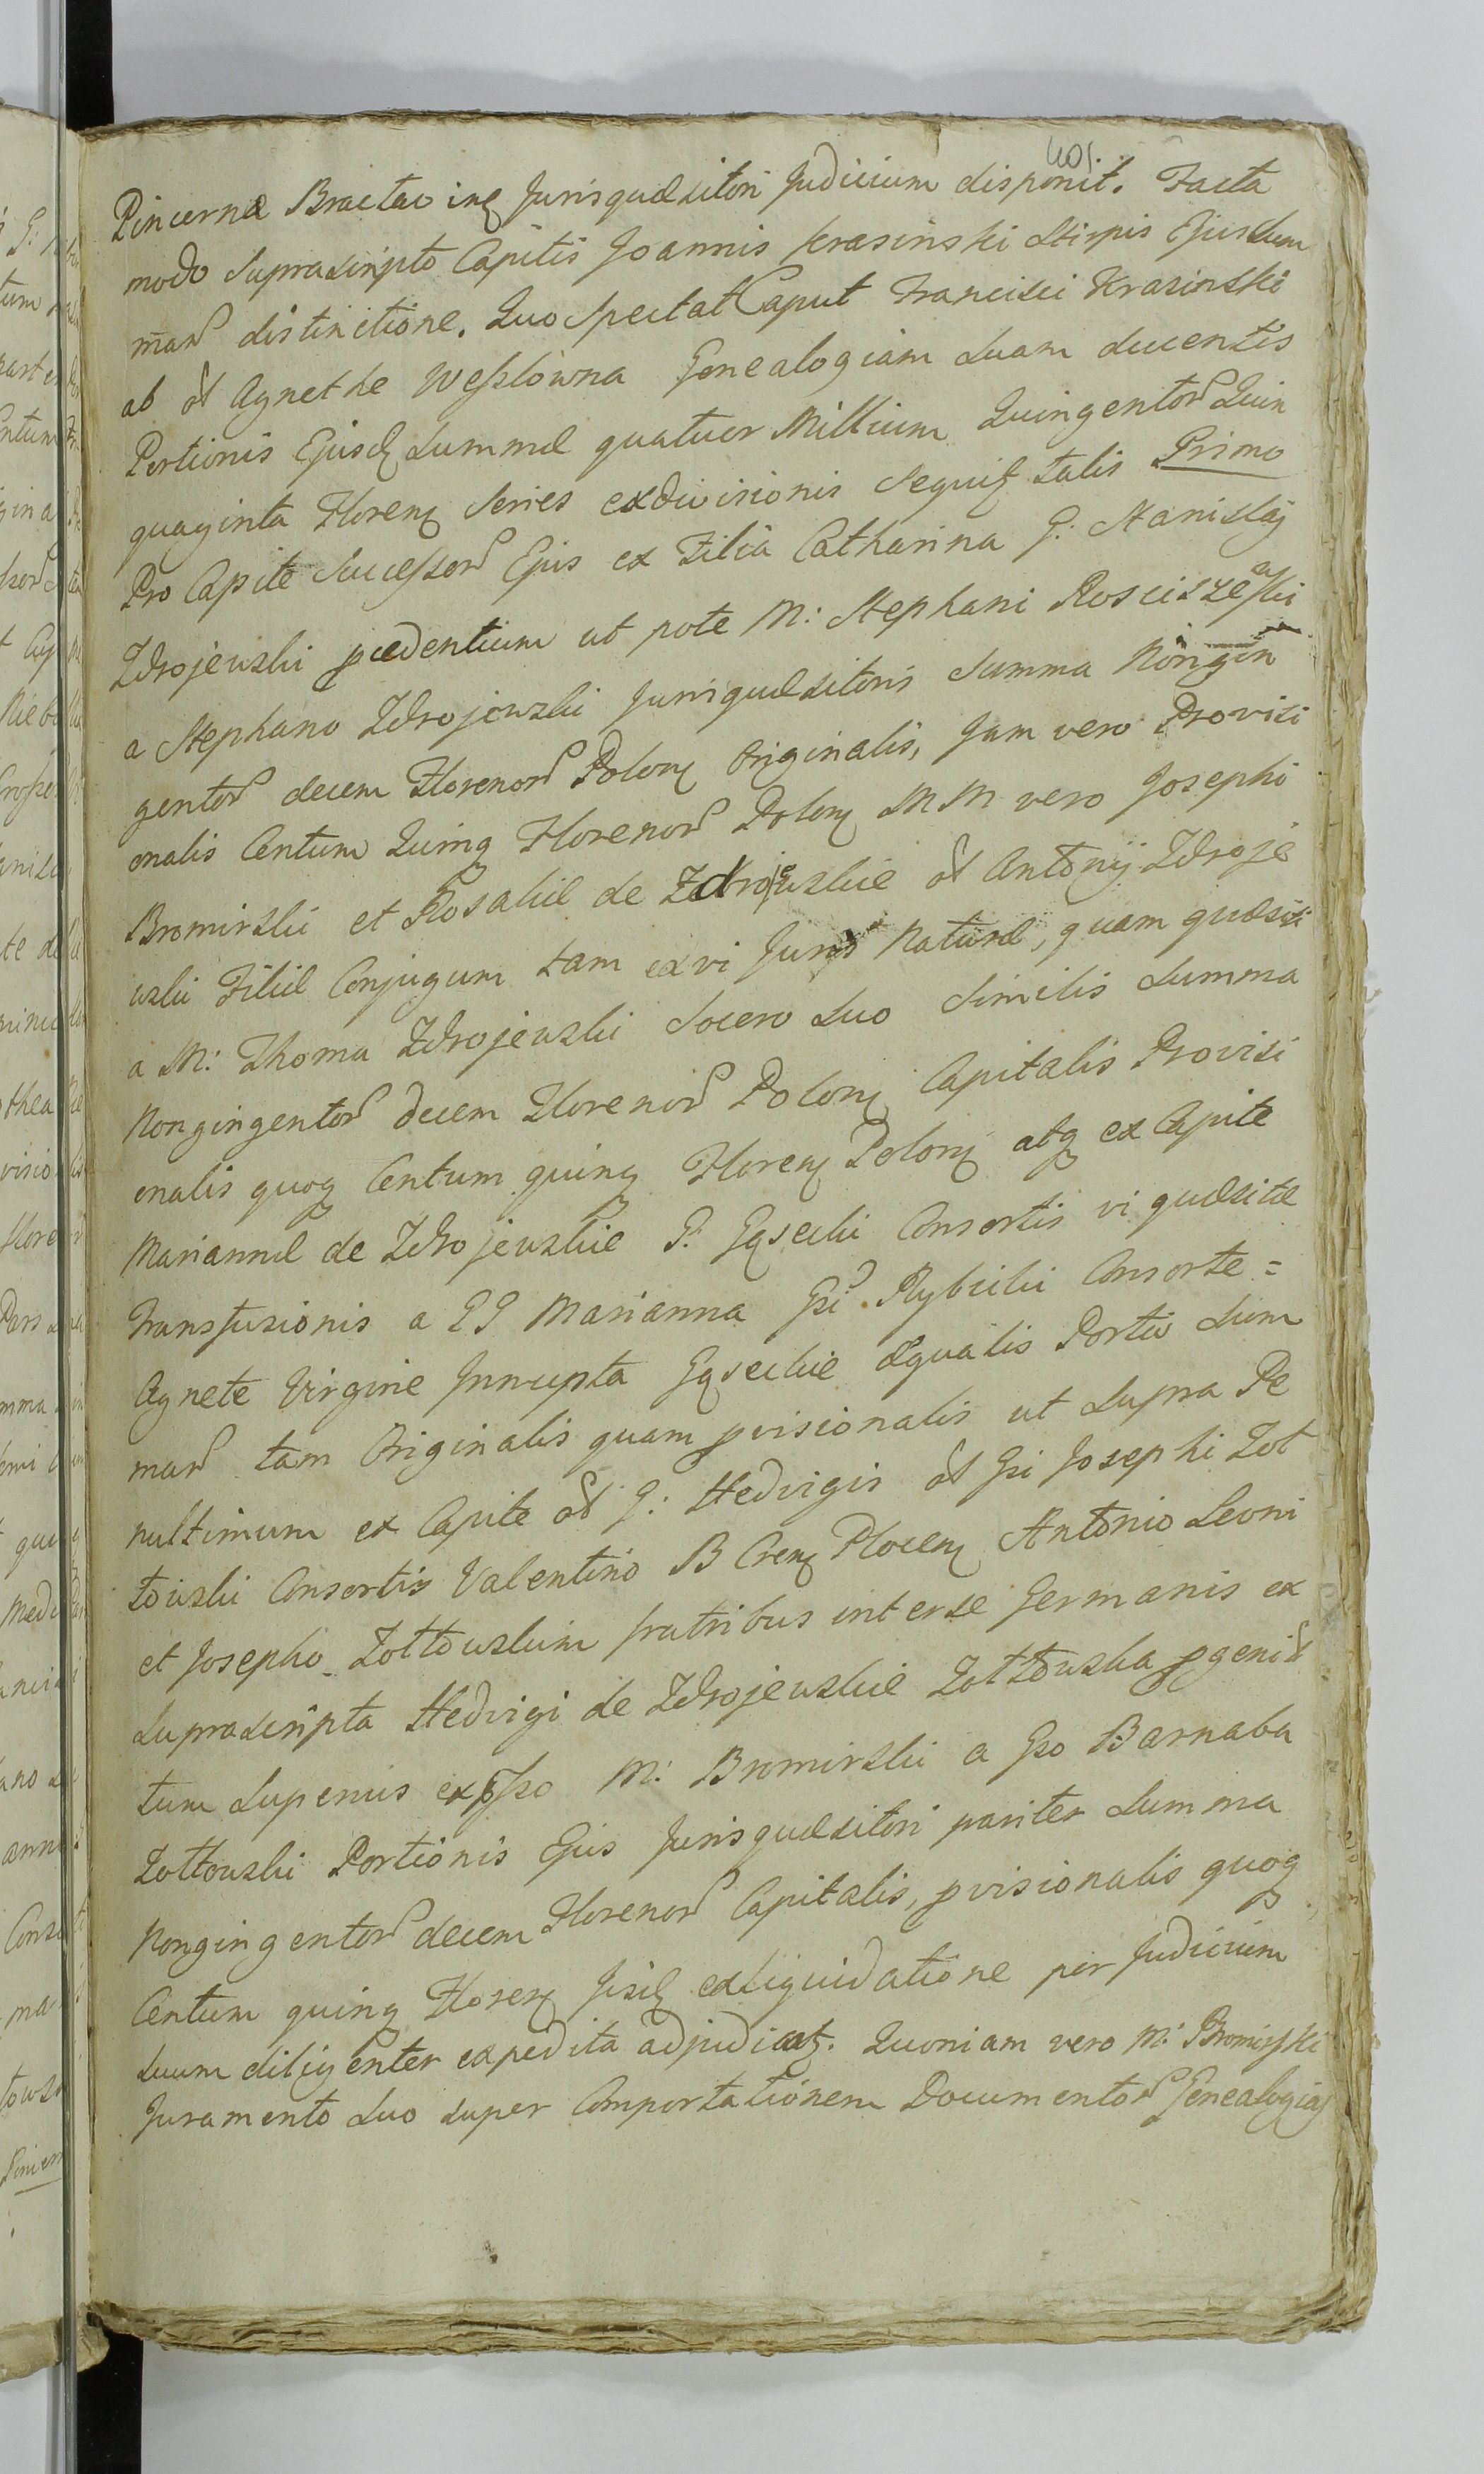 401.
Pincernæ Bractavinę Jurisquæsitori Judicium disponit. Facta
modo suprascripto Capitis Joannis Krasinski Stirpis Ejusdem
distinctione. Quo Spectat Caput Francisci Krasinski
ab Agnethe Wesslowna Genealogiam suam ducentis
Portionis Ejusdę Summæ quatuor Millium Quingentor Quin
quaginta Florenę Series exdivisionis sequitę talis Primo
Pro Capite Successor Ejus ex Filia Catharina G. Stanislaj
Zdrojewski pcedentium ut pote M: Stephani Rosciszewski
a Stephano Zdrojewski Jurisquæsitoris Summa Nongin
gentor decem Florenor Polonę Originalis, Jam vero Provisi
onalis Centum Quinq Florenor Polonę MM vero Josephi
Bromirski et Rosaliæ de Zdrojewskie Antonij Zdroje
wski Filiæ Conjugum tam ex vi Juris Naturæ, quam quæsiti
a M: Thoma Zdrojewski Socero Suo Similis Summa
Nongingentor decem Florenor Polonę Capitalis Provisi
onalis quoq Centum quinq Florenę Polonę atq ex Capite
Mariannæ de Zdrojewskie G. Consortis vi quæsitæ
transfusionis a GG Marianna Gsi Rybicki Consorte =
Agnete Virgine Innupta æqualis Portio Sum
mar tam Originalis quam pvisionalis ut Supra Pe
nultimum ex Capite G: Hedvigis Gsi Josephi Zot
towski Consortis Valentino B Crenę Plocenę Antonio Leoni
et Josepho Zottowskim fratribus interse Germanis ex
Suprascripta Hedvigi de Zdrojewskie Zottowska pgenit
tum Supernis M: Bromirski a Gso Barnaba
Zottowski Portionis Ejus Jurisquæsitori pariter Summa
Nongingentor decem Florenor Capitalis, pvisionalis quoq
Centum quinq Florenę exliquidatione per Judicium
Suum diligenter expedita adjudicatę. Quoniam vero M: Bromirski
Juramento Suo super Comportationem Documentor Genealogiaę